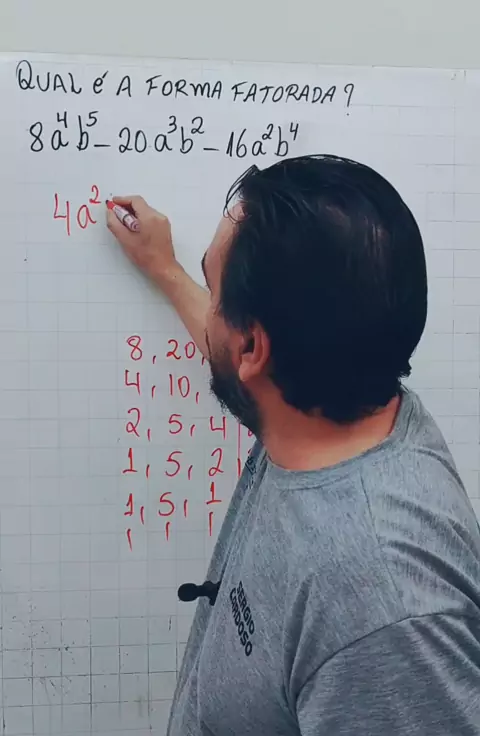 QUAL É A FORMA FATORADA?
8a⁴b⁵ - 20a³b² - 16a²b⁴
4a²
8, 20,
4, 10,
2, 5, 4
1, 5, 2
1, 5, 1
SERGIO
CARDOSO